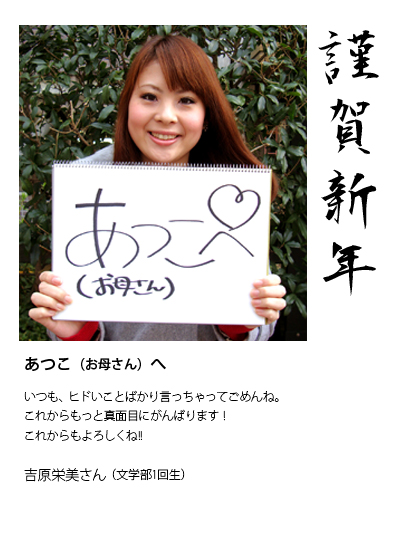 謹賀新年
あつこへ♡
(お母さん)
あつこ（お母さん）へ
いつも、ヒドいことばかり言っちゃってごめんね。
これからもっと真面目にがんばります！
これからもよろしくね!!
吉原栄美さん（文学部1回生）